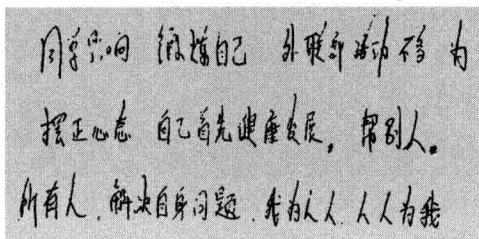 同学影响 锻炼自己 外联部活动 不多 为
摆正心态 自己首先健康发展。帮别人。
所有人、解决自身问题、我为人人 人人为我